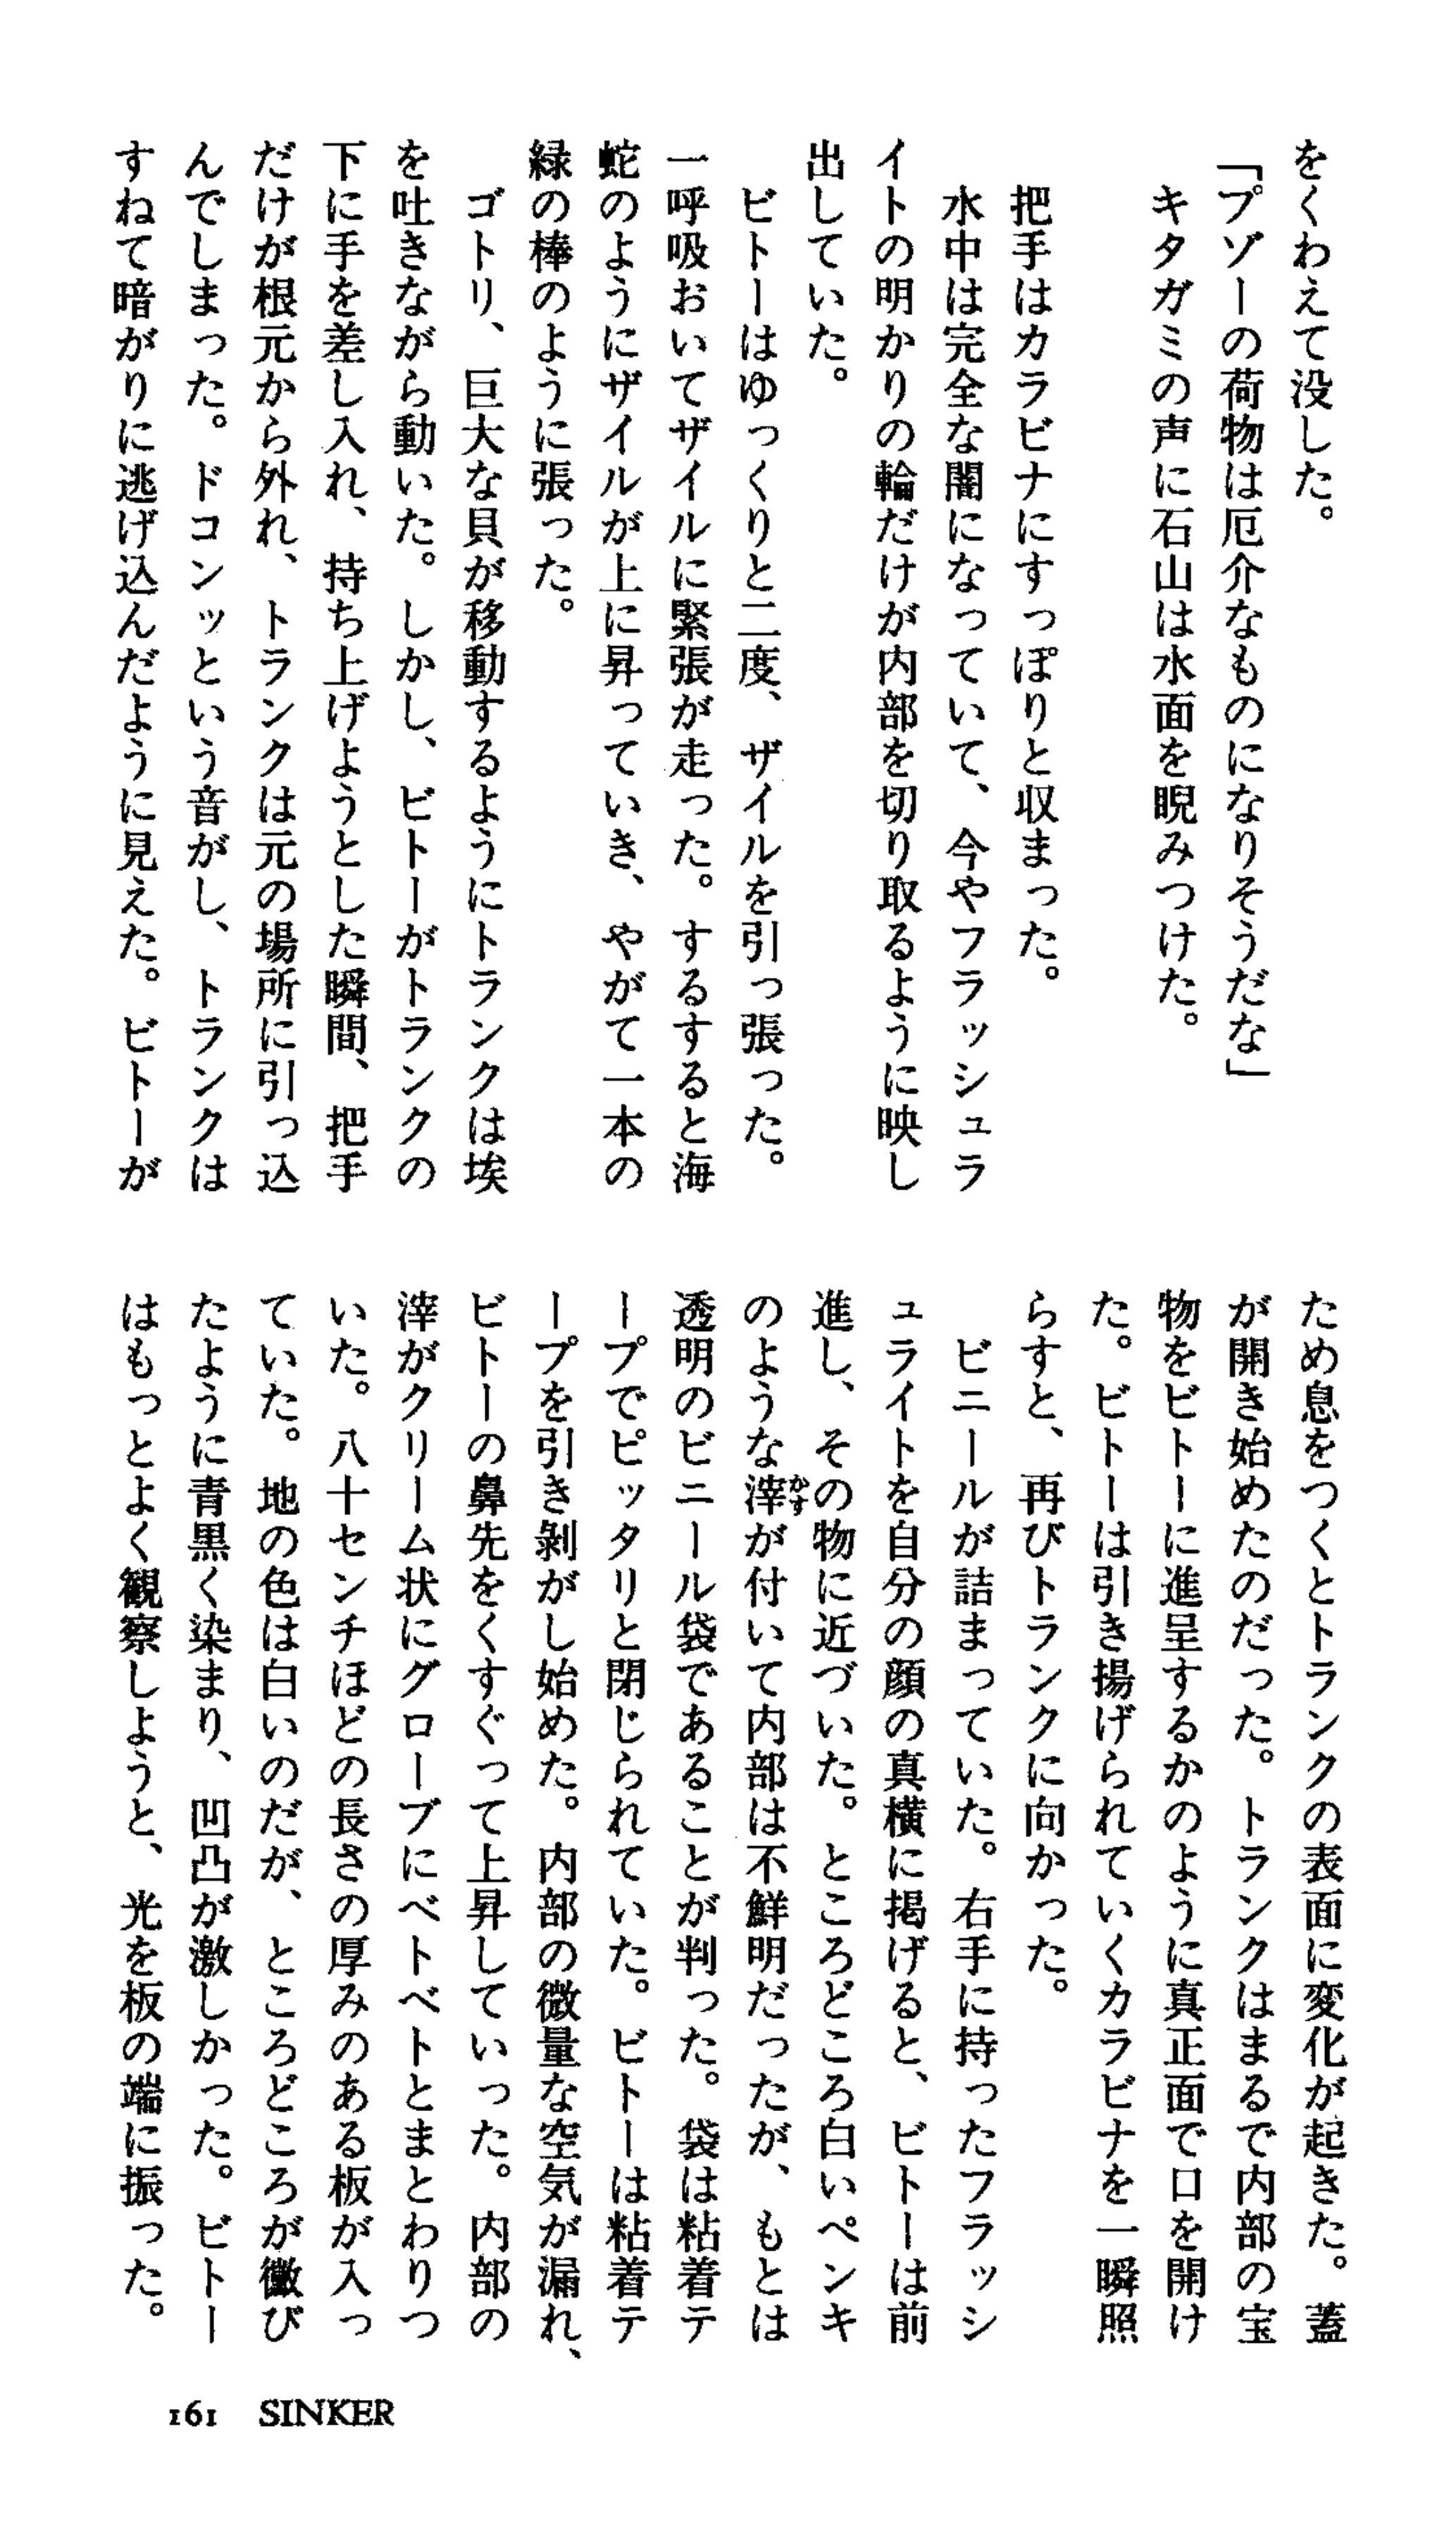 をくわえて没した。
「プゾーの荷物は厄介なものになりそうだな」
キタガミの声に石山は水面を睨みつけた。
把手はカラビナにすっぽりと収まった。
水中は完全な闇になっていて、今やフラッシュラ
イトの明かりの輪だけが内部を切り取るように映し
出していた。
ビトーはゆっくりと二度、ザイルを引っ張った。
一呼吸おいてザイルに緊張が走った。するすると海
蛇のようにザイルが上に昇っていき、やがて一本の
緑の棒のように張った。
ゴトリ、巨大な貝が移動するようにトランクは埃
を吐きながら動いた。しかし、ビトーがトランクの
下に手を差し入れ、持ち上げようとした瞬間、把手
だけが根元から外れ、トランクは元の場所に引っ込
んでしまった。ドコンッという音がし、トランクは
すねて暗がりに逃げ込んだように見えた。ビトーが
ため息をつくとトランクの表面に変化が起きた。蓋
が開き始めたのだった。トランクはまるで内部の宝
物をビトーに進呈するかのように真正面で口を開け
た。ビトーは引き揚げられていくカラビナを一瞬照
らすと、再びトランクに向かった。
ビニールが詰まっていた。右手に持ったフラッシ
ュライトを自分の顔の真横に掲げると、ビトーは前
進し、その物に近づいた。ところどころ白いペンキ
のような滓かすが付いて内部は不鮮明だったが、もとは
透明のビニール袋であることが判った。袋は粘着テ
ープでピッタリと閉じられていた。ビトーは粘着テ
ープを引き剝がし始めた。内部の微量な空気が漏れ、
ビトーの鼻先をくすぐって上昇していった。内部の
滓がクリーム状にグローブにベトベトとまとわりつ
いた。八十センチほどの長さの厚みのある板が入っ
ていた。地の色は白いのだが、ところどころが黴び
たように青黒く染まり、凹凸が激しかった。ビトー
はもっとよく観察しようと、光を板の端に振った。
161 SINKER